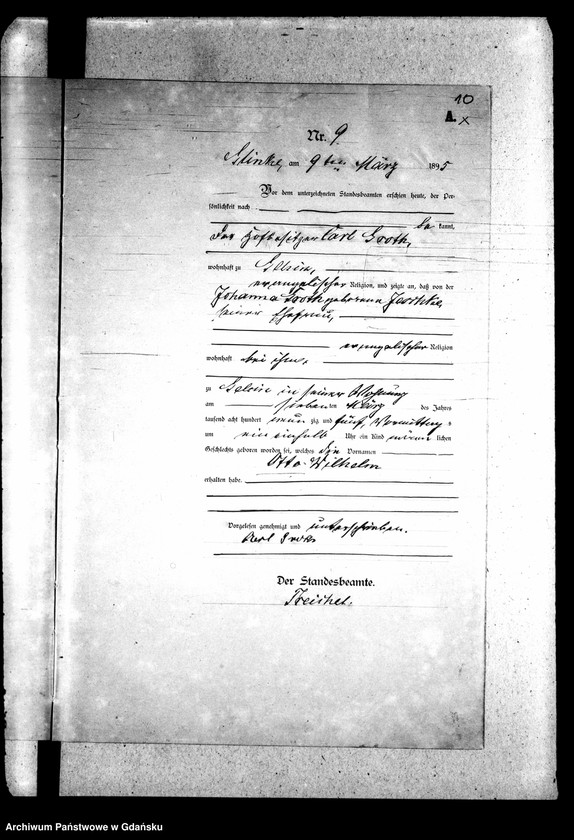 10
A.
x
Nr. 9.
am 9ten März 1895
Vor dem unterzeichneten Standesbeamten erschien heute, der Per-
sönlichkeit nach
be kannt,
der Hofbesitzer Carl Groth,
wohnhaft zu
evangelischer Religion, und zeigte an, daß von der
Johanna Groth geborene
seiner Ehefrau,
evangelischer Religion
wohnhaft bei ihm,
zu in seiner Wohnung
am sieben ten März des Jahres
tausend acht hundert neun zig und fünf, Vormittag s
um ein einhalb Uhr ein Kind männ lichen
Geschlechts geboren worden sei, welches die Vornamen
Otto Wilhelm
erhalten habe.
Vorgelesen genehmigt und unterschrieben.
Der Standesbeamte.
Treichel.
Archiwum Państwowe w Gdańsku